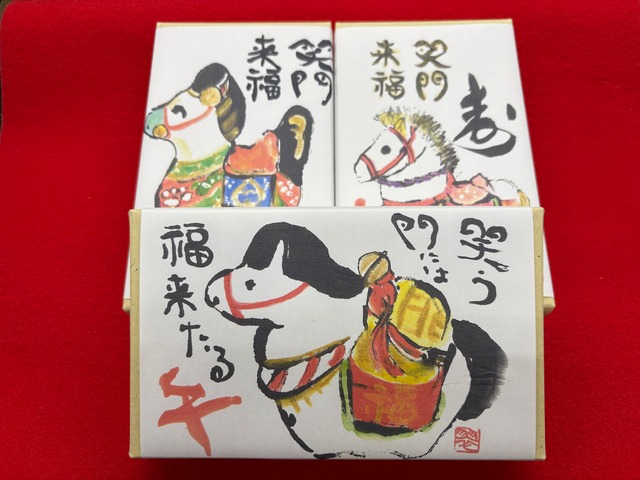 笑門
来福
笑門
来福
寿
笑う
門には
福来たる
午
福